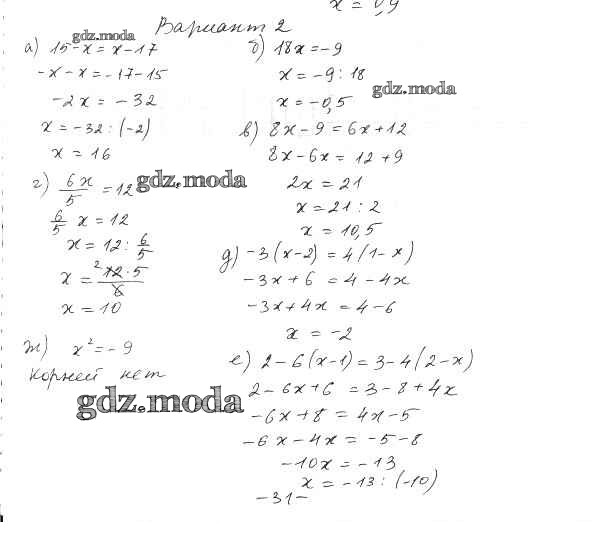 x = 0,9
Вариант 2
а) 15 - x = x - 17
- x - x = - 17 - 15
- 2x = - 32
x = - 32 : (-2)
x = 16
б) 18x = - 9
x = - 9 : 18
x = - 0,5
в) 8x - 9 = 6x + 12
8x - 6x = 12 + 9
2x = 21
x = 21 : 2
x = 10,5
г) 6x/5 = 12
6/5 x = 12
x = 12 : 6/5
x = 2 12 · 5 / 6
x = 10
д) - 3(x - 2) = 4(1 - x)
- 3x + 6 = 4 - 4x
- 3x + 4x = 4 - 6
x = - 2
е) 2 - 6(x - 1) = 3 - 4(2 - x)
2 - 6x + 6 = 3 - 8 + 4x
- 6x + 8 = 4x - 5
- 6x - 4x = - 5 - 8
- 10x = - 13
x = - 13 : (-10)
ж) x² = - 9
корней нет
- 31 -
gdz.moda
gdz.moda
gdz.moda
gdz.moda